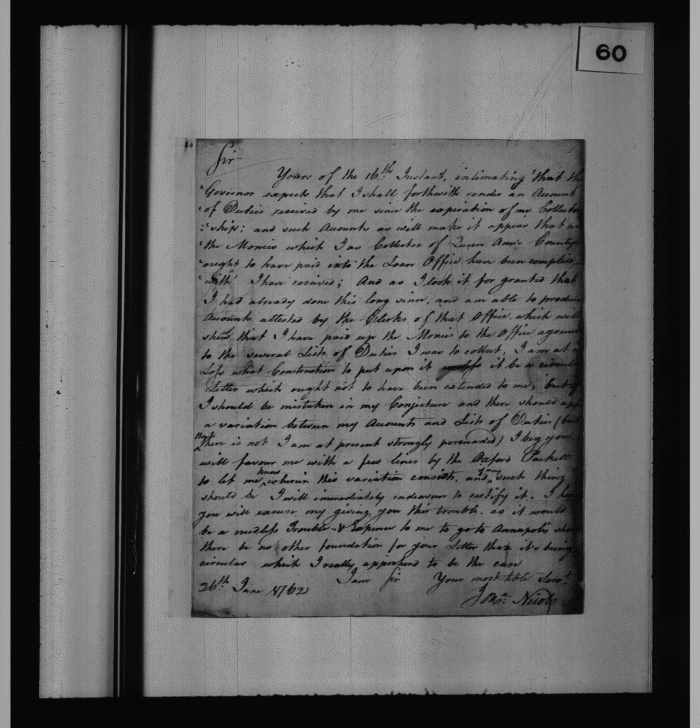 60
Sir
Yours of the 16th. Instant, intimating that the
Governor expects that I shall forthwith render an Account
of Duties received by me since the expiration of my Collector
ship; and such Accounts as will make it appear that
the Monies which I as Collector of Queen Ann's County
ought to have paid into the Loan Office have been complied
with I have received; And as I took it for granted that
I had already done this long since, and am able to produce
Accounts attested by the Clerks of that Office which will
shew that I have paid up the Monies to the Office
to the several Lists of Duties I was to collect, I am at a
Loss what Construction to put upon it unless it be a circular
Letter which ought not to have been extended to me; but if
I should be mistaken in my Conjecture and there should
a variation between my Accounts and Lists of Duties (but
that there is not I am at present strongly perswaded) I beg you
will favour me with a few lines by the Oxford Packett
to let me know wherein this variation consists, and if any such thing
should be I will immediately endeavour to rectify it. I
you will excuse my giving you this trouble, as it would
be a needless Trouble & Expence to me to go to Annapolis
there be no other foundation for your Letter than it's being
circular which I really apprehend to be the case
I am Sir Your most Servt.
26th. June 1762
Jona. Nicols